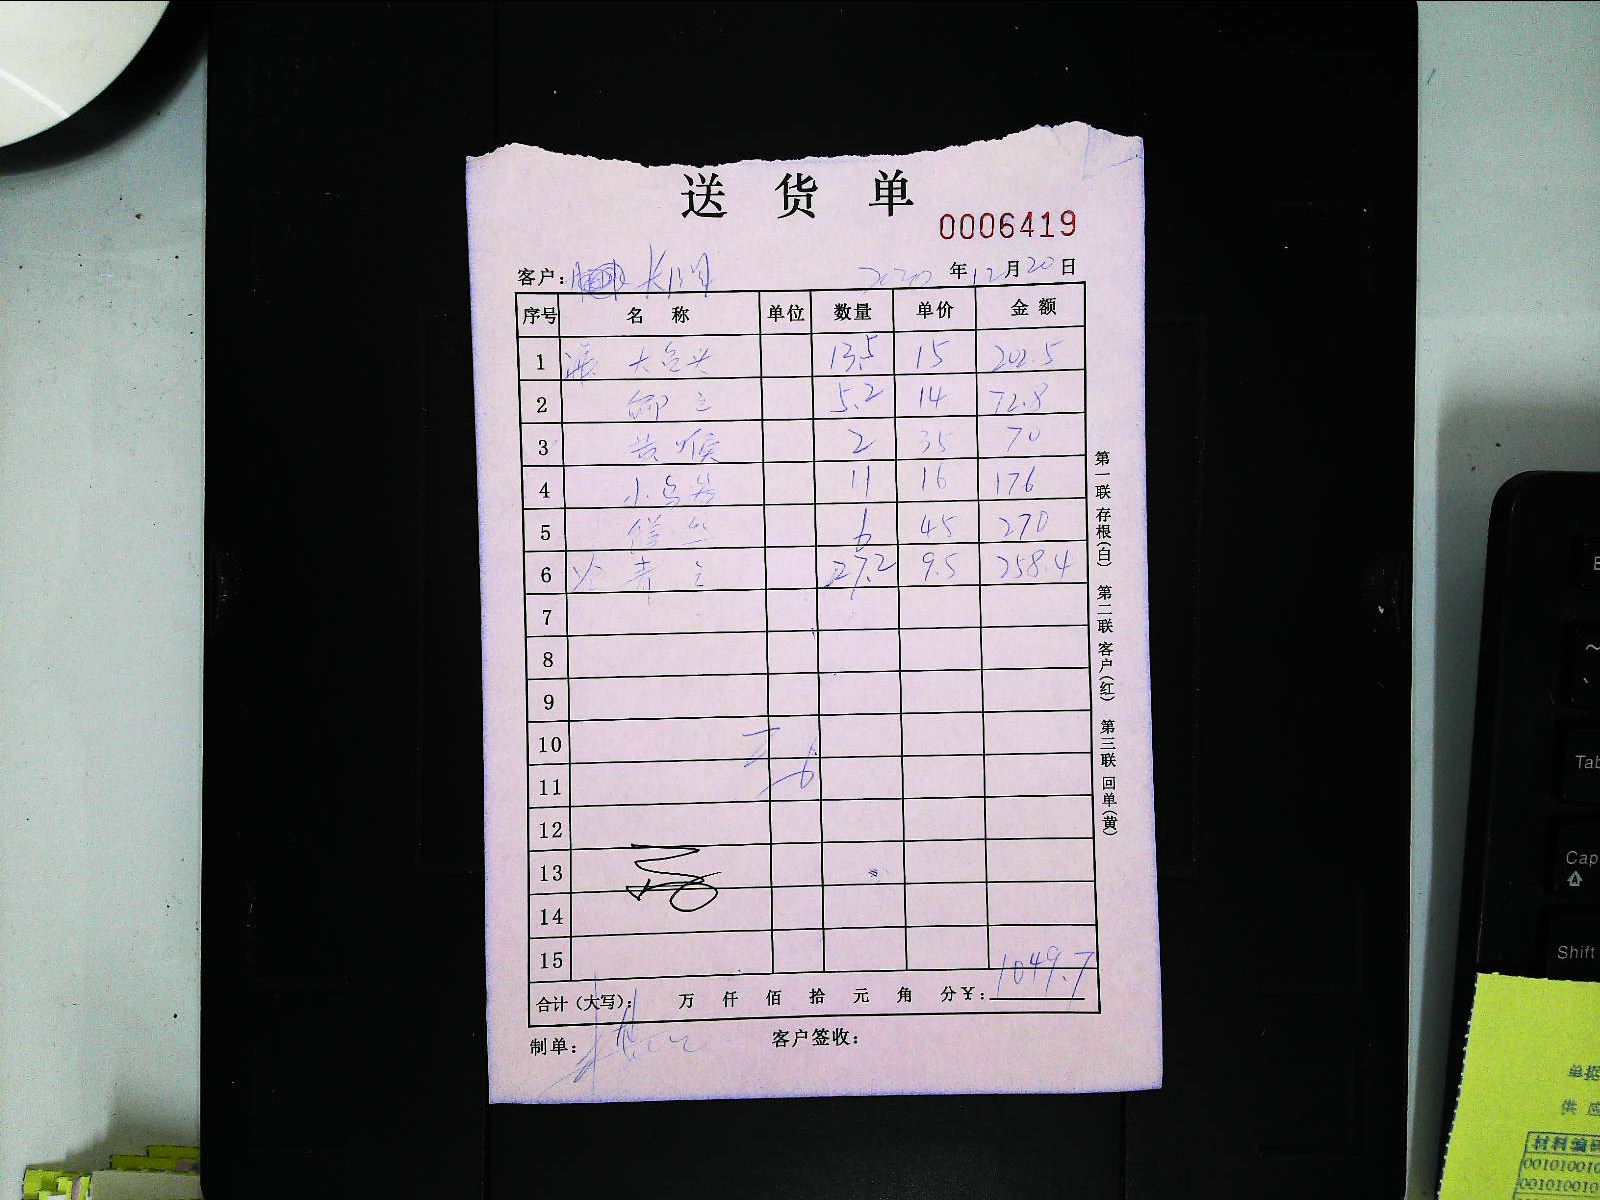 送货单
0006419
客户： 2020年12月20日
序号 名称 单位 数量 单价 金额
1 大 13.5 15 202.5
2 5.2 14 72.8
3 黄喉 2 35 70
4 小 11 16 176
5 6 45 270
6 27.2 9.5 258.4
7
8
9
10
11
12
13
14
15
1049.7
合计（大写）： 万 仟 佰 拾 元 角 分 ￥：
制单： 客户签收：
第一联 存根（白） 第二联 客户（红） 第三联 回单（黄）
Tab
Cap
Shift
单据
供应
材料编码
00101001
00101001